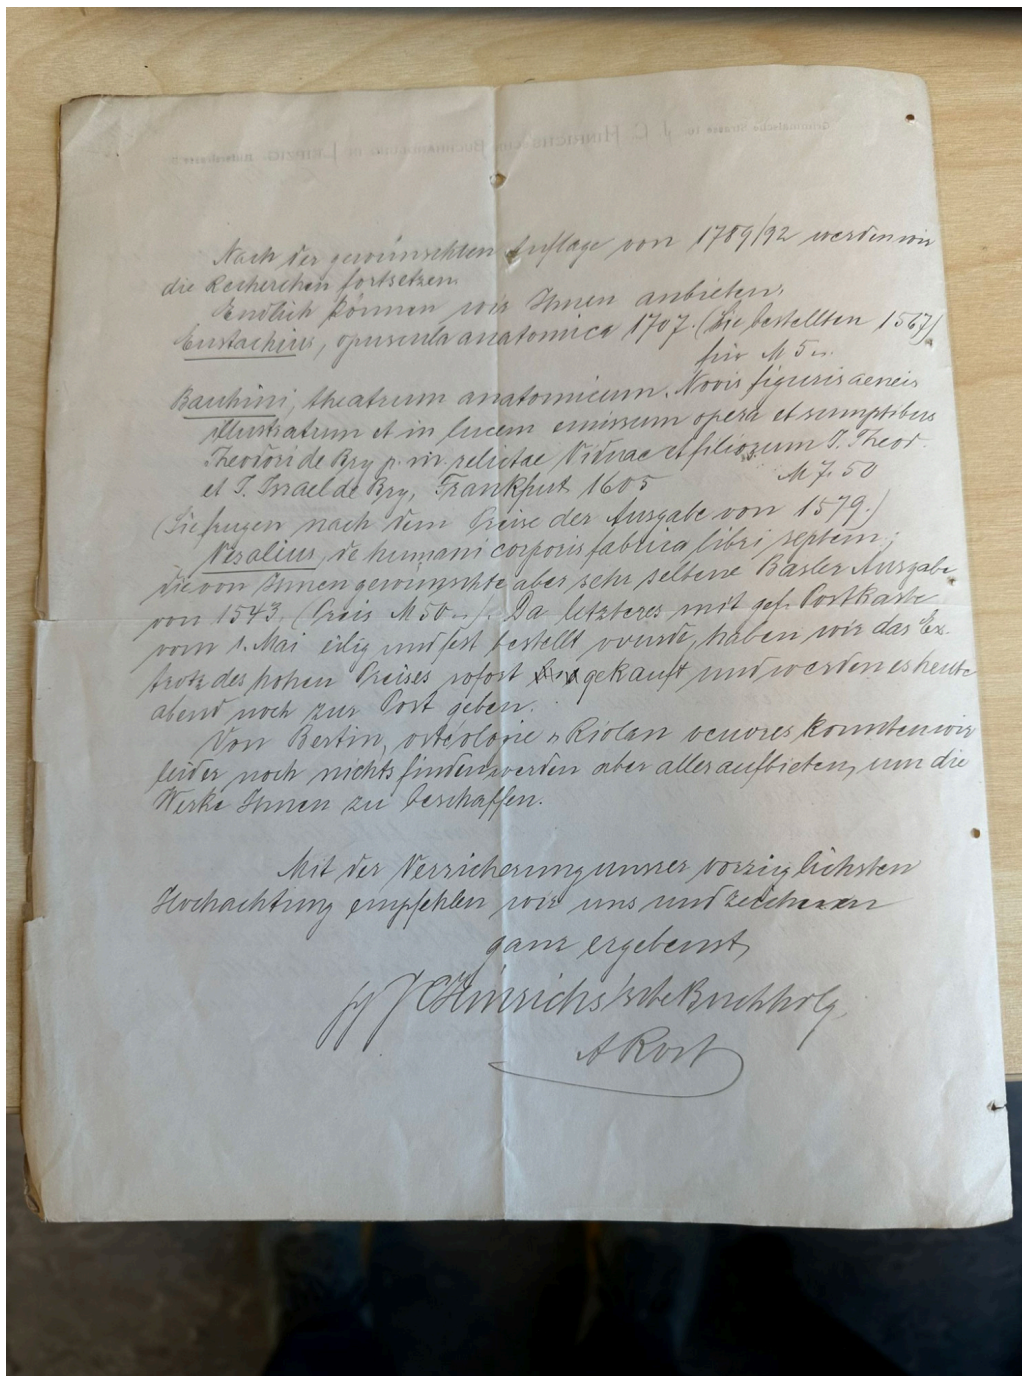 Nach der gewünschten Auflage von 1789/92 werden wir
die Recherchen fortsetzen.
Endlich können wir Ihnen anbieten:
Eustachius, opuscula anatomica 1707. (Sie bestellten 1567)
für M 5.-.
Bauhini, theatrum anatomicum. Novis figuris aeneis
illustratum et in lucem emissum opera et sumptibus
Theodori de Bry p. m. relictae Viduae et filiorum J. Theod.
et J. Israel de Bry, Frankfurt 1605 M 7.50
(Sie frugen nach dem Preise der Ausgabe von 1579.)
Vesalius, de humani corporis fabrica libri septem;
die von Ihnen gewünschte aber sehr seltene Basler Ausgabe
von 1543. (Preis M 50.-). Da letzteres mit gef. Postkarte
vom 1. Mai eilig und fest bestellt wurde, haben wir das Ex.
trotz des hohen Preises sofort gekauft und werden es heute
abend noch zur Post geben.
Von Bertin, ostéologie u Riolan oeuvres konnten wir
leider noch nichts finden, werden aber alles aufbieten, um die
Werke Ihnen zu beschaffen.
Mit der Versicherung unsrer vorzüglichsten
Hochachtung empfehlen wir uns und zeichnen
ganz ergebenst
J C Hinrichs'sche Buchhdlg.
A Rost